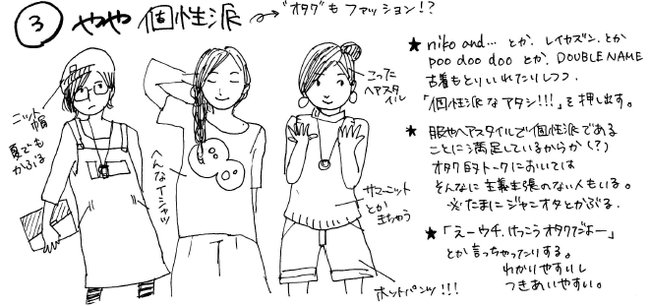 ③ やや個性派 → "オタク"もファッション!?
★ niko and... とか、レイカズン、とか
poo doo doo とか、DOUBLE NAME
古着もとりいれたりしつつ、
「個性派なアタシ!!!」を押し出す。
★ 服やヘアスタイルで個性派である
ことに満足しているからか(?)
オタク的トークにおいては
そんなに主義主張のない人もいる。
※たまにジャニオタとかぶる。
★「えーウチ、けっこうオタクだよー」
とか言っちゃったりする。
わかりやすいし
つきあいやすい。
ニット
帽
夏でも
かぶる
へんなTシャツ
こった
ヘアスタ
イル
サマーニット
とか
きちゃう
ホットパンツ!!!